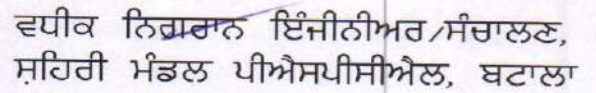 ਵਧੀਕ ਨਿਗਰਾਨ ਇੰਜੀਨੀਅਰ/ਸੰਚਾਲਣ,
ਸ਼ਹਿਰੀ ਮੰਡਲ ਪੀਐਸਪੀਸੀਐਲ, ਬਟਾਲਾ